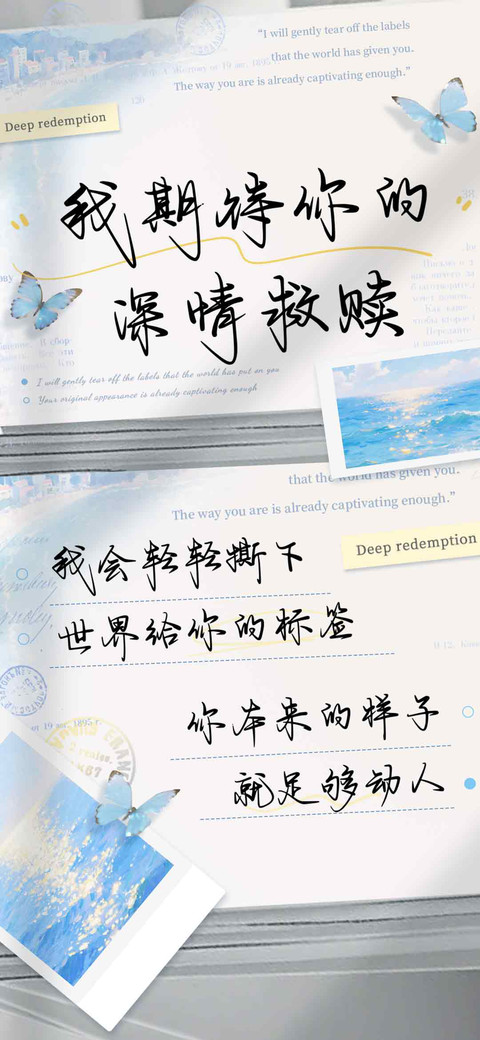 “I will gently tear off the labels
that the world has given you.
The way you are is already captivating enough.”
Deep redemption
我期待你的
深情救赎
I will gently tear off the labels that the world has put on you
Your original appearance is already captivating enough
that the world has given you.
The way you are is already captivating enough.”
Deep redemption
我会轻轻撕下
世界给你的标签
你本来的样子
就足够动人